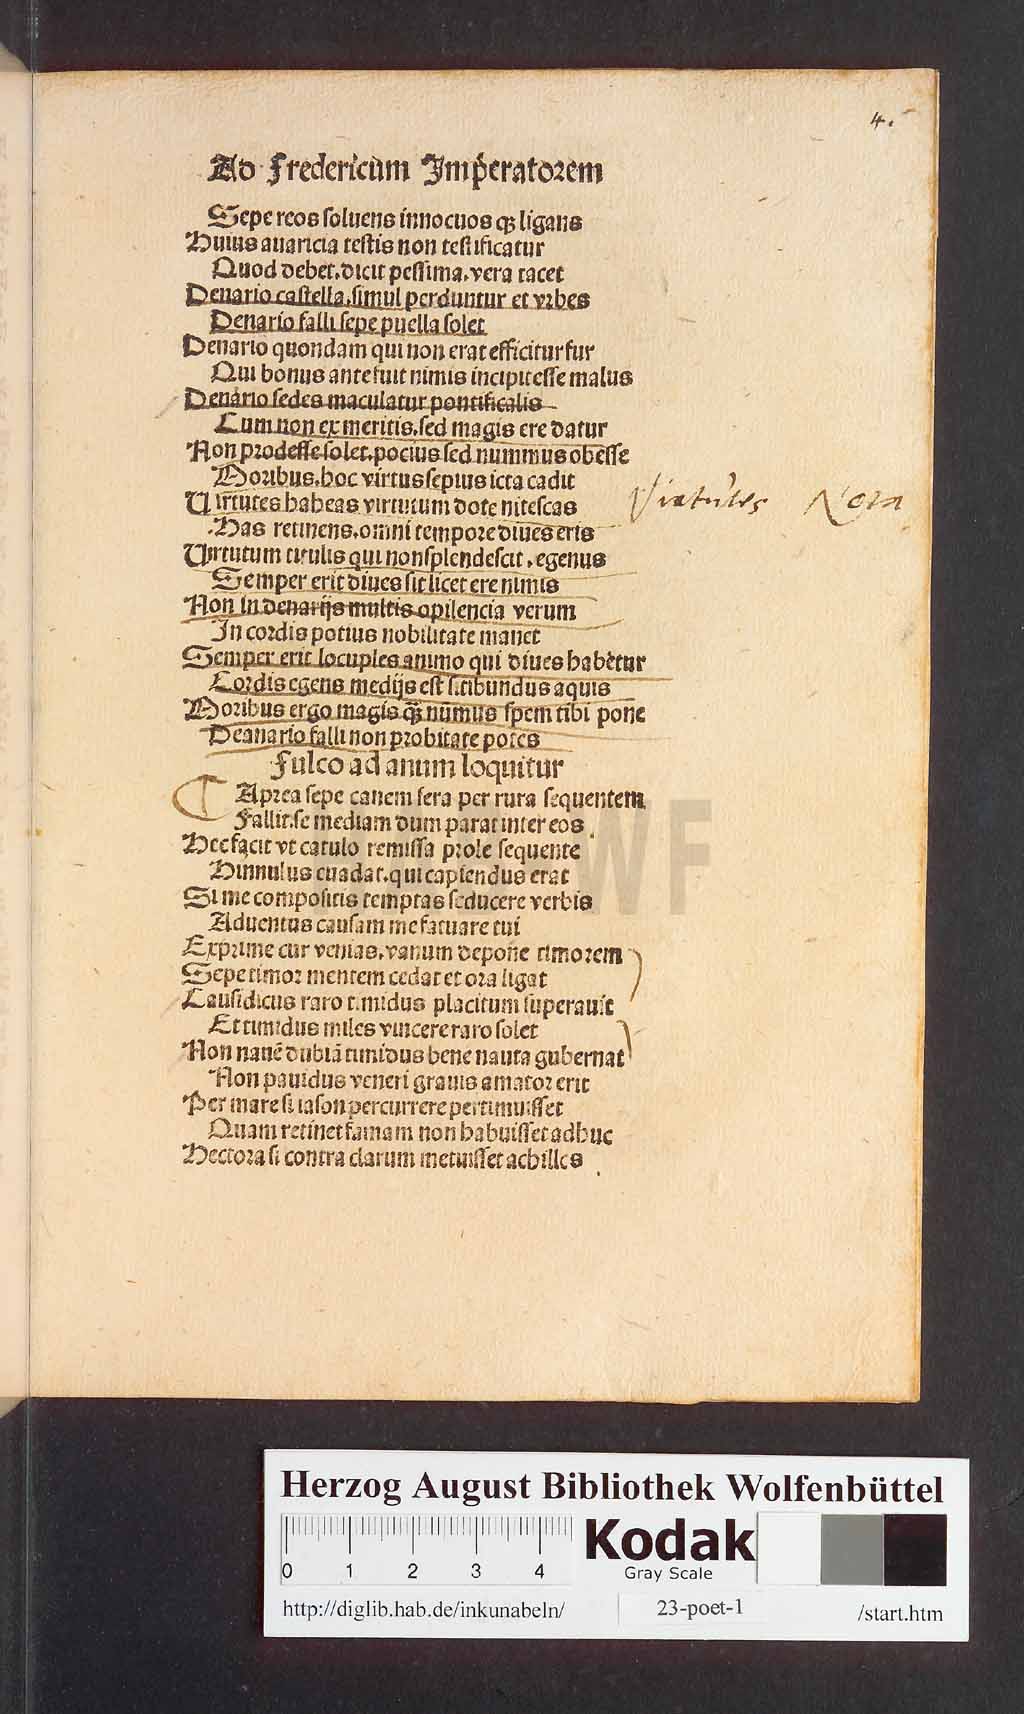 4.
Ad Fredericum Imperatorem
Sepe reos soluens innocuos qꝫ ligans
Huius auaricia testis non testificatur
Quod debet. dicit pessima. vera tacet
Denario castella. simul perduntur et vrbes
Denario falli sepe puella solet
Denario quondam qui non erat efficitur fur
Qui bonus ante fuit nimis incipit esse malus
Denario sedes maculatur pontificalis
Cum non ex meritis. sed magis ere datur
Non prodesse solet. pocius sed nummus obesse
Moribus. hoc virtus sepius icta cadit
Virtutes habeas virtutum dote nitescas
Has retinens. omni tempore diues eris
Virtutum titulis qui non splendescit. egenus
Semper erit diues sit licet ere nimis
Non in denarijs multis opilencia verum
In cordis potius nobilitate manet
Semper erit locuples animo qui diues habetur
Cordis egens medijs est sitibundus aquis
Moribus ergo magis qꝫ nūmus spem tibi pone
Deanario falli non probitate potes
Virtutes Nota
Fulco ad anum loquitur
Caprea sepe canem fera per rura sequentem
Fallit. se mediam dum parat inter eos
Hec facit vt catulo remissa prole sequente
Hinnulus euadat. qui capiendus erat
Si me compositis temptas seducere verbis
Aduentus causam me fatuare tui
Exprime cur venias. vanum depone timorem
Sepe timor mentem cedat et ora ligat
Causidicus raro timidus placitum superauit
Et timidus miles vincere raro solet
Non nauē dubiā timidus bene nauta gubernat
Non pauidus veneri grauis amator erit
Per mare si iason percurrere pertimuisset
Quam retinet famam non habuisset adhuc
Hectora si contra clarum metuisset achilles
HAB WF
Herzog August Bibliothek Wolfenbüttel
0 1 2 3 4
Kodak
Gray Scale
http://diglib.hab.de/inkunabeln/ 23-poet-1 /start.htm